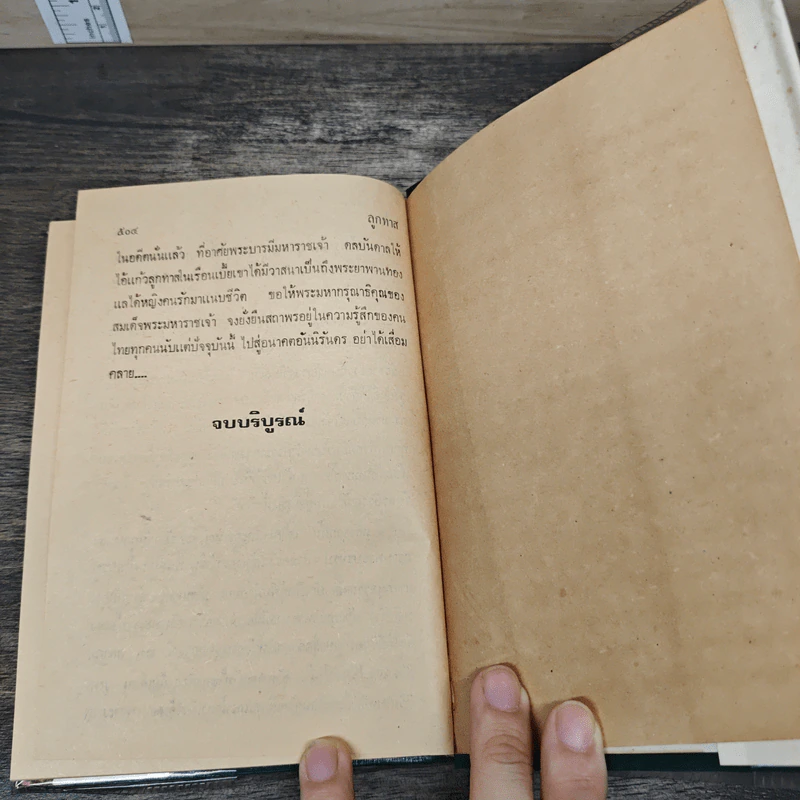 ๕๐๔ ลูกทาส
ในอดีตนั้นแล้ว ที่อาศัยพระบารมีมหาราชเจ้า ดลบันดาลให้
ไอ้แก้วลูกทาสในเรือนเบี้ยเขาได้มีวาสนาเป็นถึงพระยาพานทอง
แลได้หญิงคนรักมาแนบชีวิต ขอให้พระมหากรุณาธิคุณของ
สมเด็จพระมหาราชเจ้า จงยั่งยืนสถาพรอยู่ในความรู้สึกของคน
ไทยทุกคนนับแต่ปัจจุบันนี้ ไปสู่อนาคตอันนิรันดร อย่าได้เสื่อม
คลาย....
จบบริบูรณ์
1
2
inches